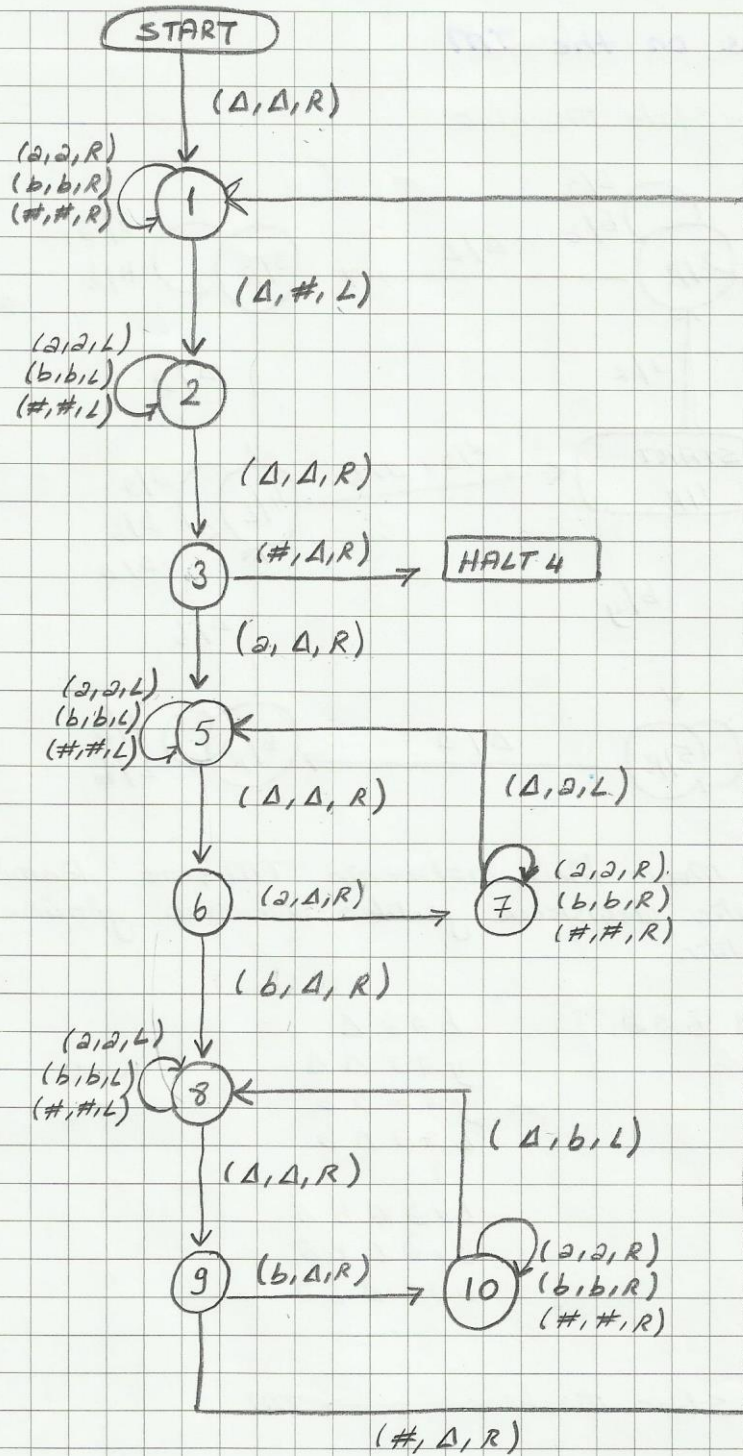 START
(Δ, Δ, R)
(a,a,R)
(b,b,R)
(#,#,R)
1
(Δ, #, L)
(a,a,L)
(b,b,L)
(#,#,L)
2
(Δ, Δ, R)
3
(#, Δ, R)
HALT 4
(a, Δ, R)
(a,a,L)
(b,b,L)
(#,#,L)
5
(Δ, Δ, R)
(Δ,a,L)
6
(a,Δ,R)
7
(a,a,R)
(b,b,R)
(#,#,R)
(b, Δ, R)
(a,a,L)
(b,b,L)
(#,#,L)
8
(Δ, b, L)
(Δ,Δ,R)
9
(b,Δ,R)
10
(a,a,R)
(b,b,R)
(#,#,R)
(#, Δ, R)